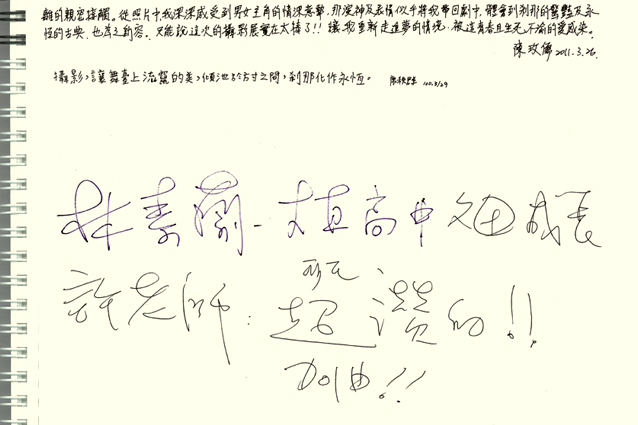 離的親密接觸。從照片中我深深感受到男女主角的情深意摯,那眼神及表情似乎將我帶回劇中,體會到剎那的驚豔及永
恆的古典,也為之動容。只能說這次的攝影展實在太棒了!!讓我重新走進夢的情境,被這青春且生死不渝的愛感染。
陳玫儒 2011.3.26.
攝影,讓舞臺上流麗的美,傾洩於方寸之間,剎那化作永恆。
林素蘭-大直高中
許老師:超讚的!!
加油!!